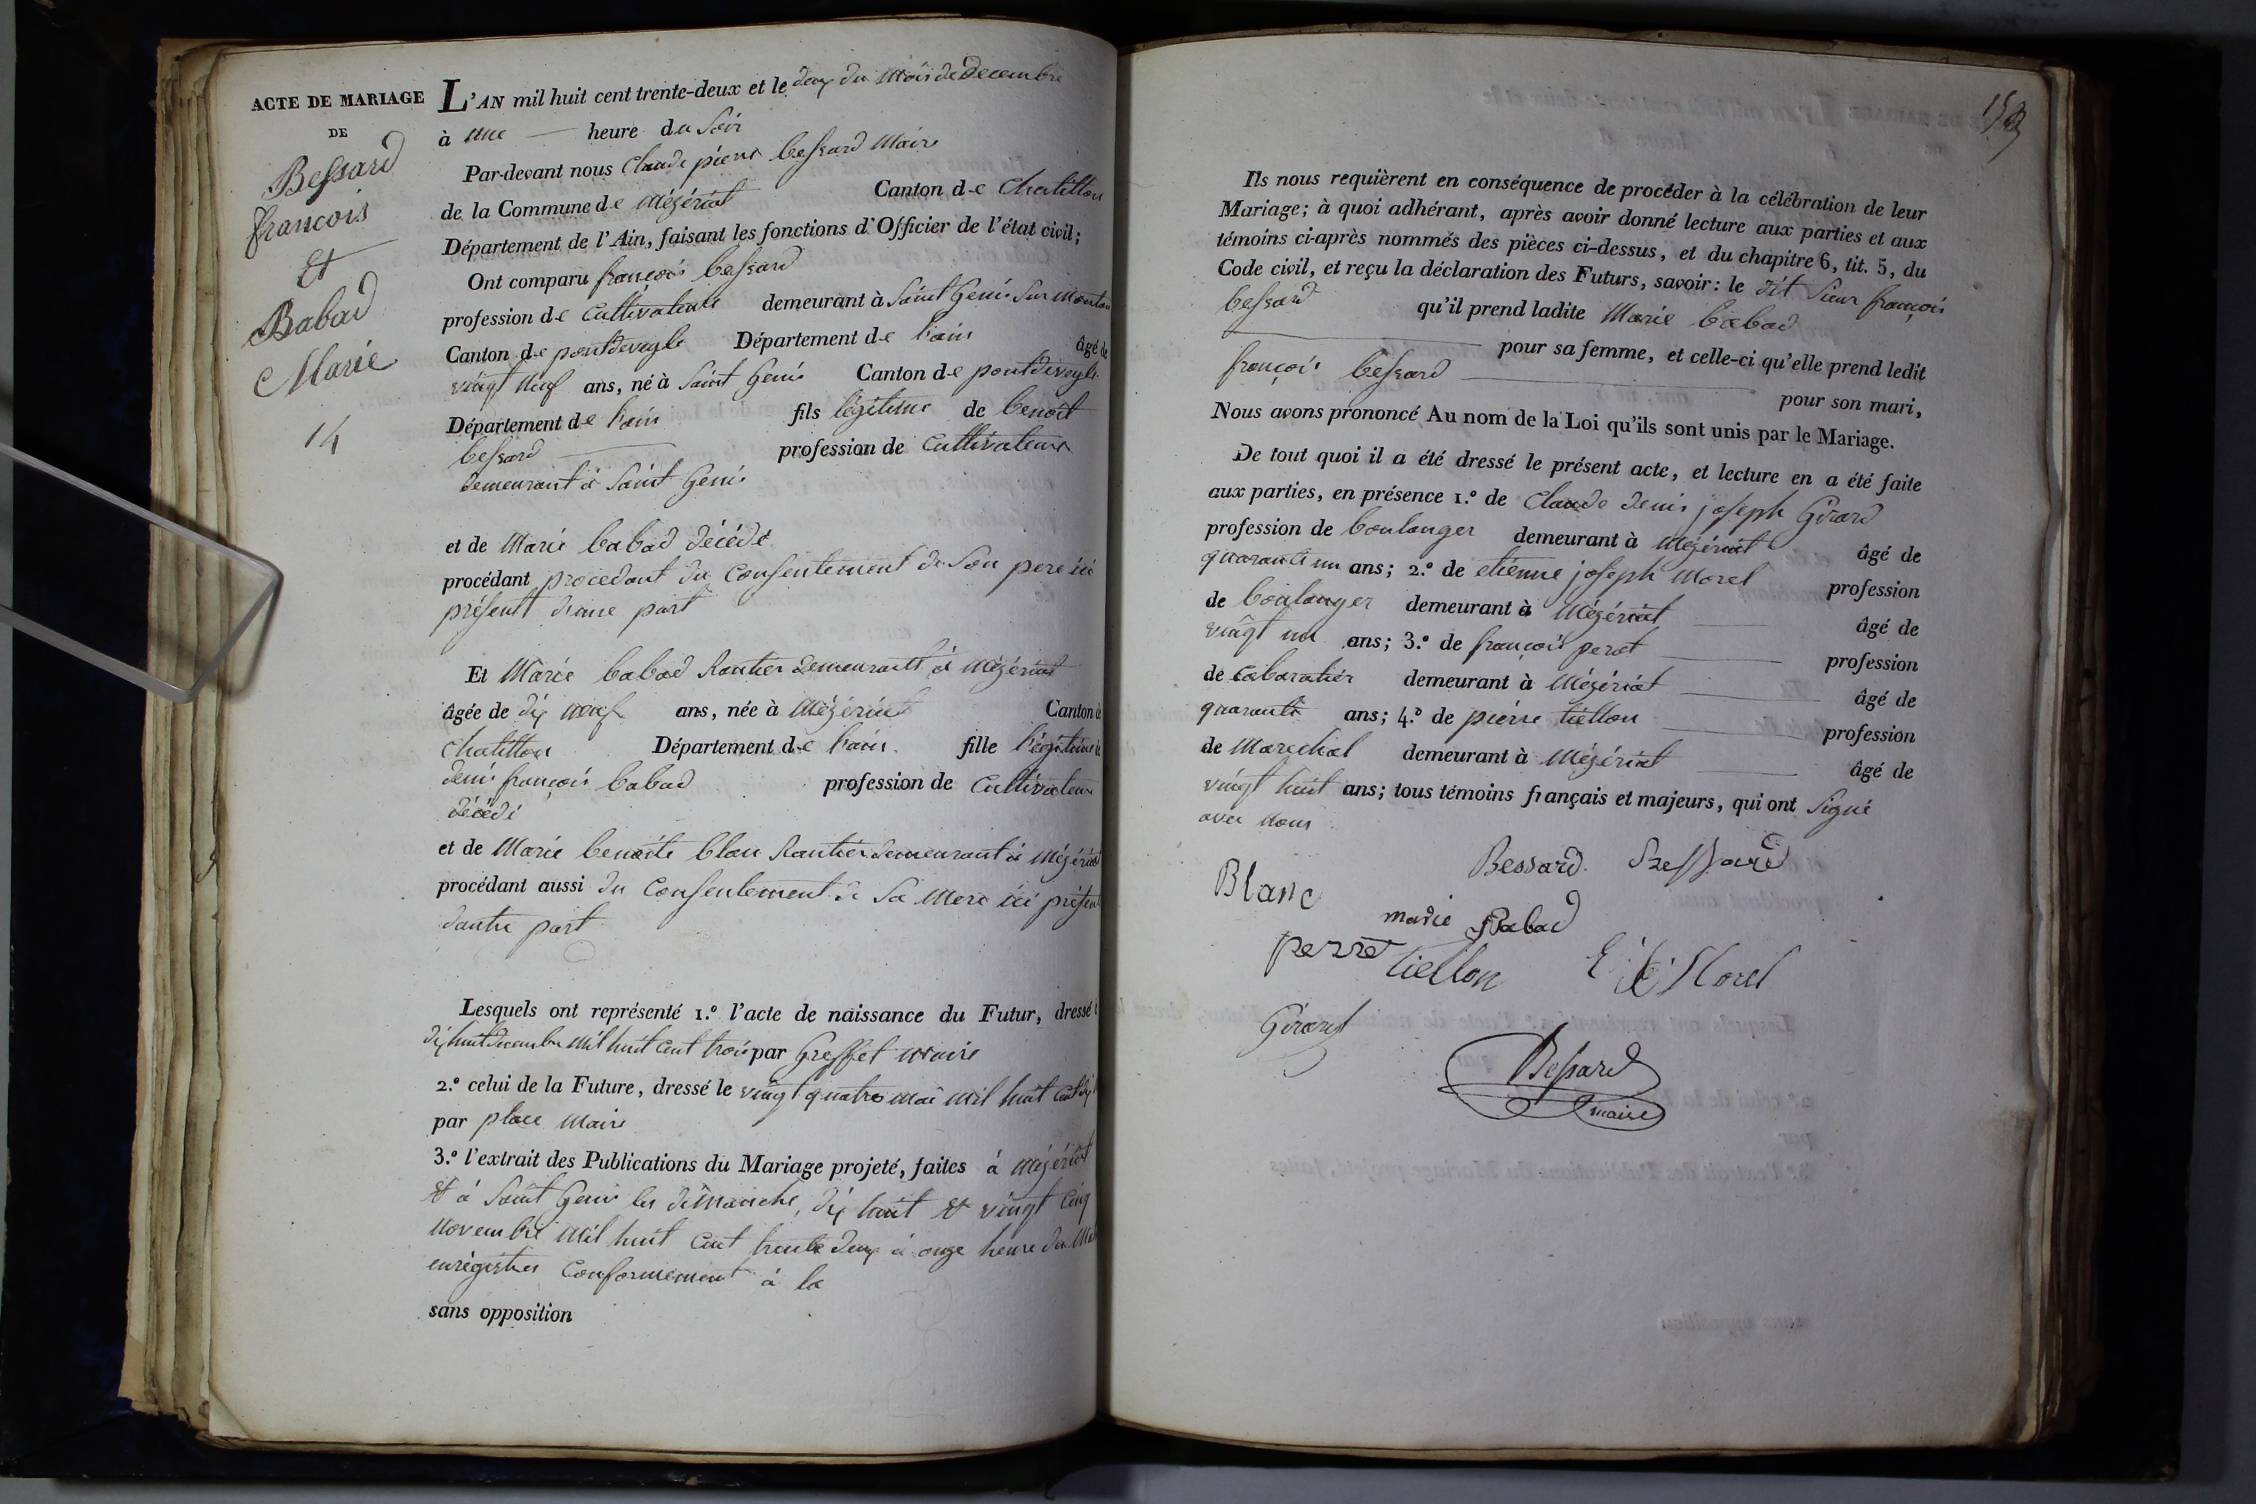 ACTE DE MARIAGE
DE
Bessard
françois
Et
Babad
Marie
14
L'AN mil huit cent trente-deux et le deux du mois de Decembre
à une heure du Soir
Par-devant nous Claude pierre bessard Maire
de la Commune de Mézériat Canton de Chatillon
Département de l'Ain, faisant les fonctions d'Officier de l'état civil;
Ont comparu françois bessard
profession de Cultivateur demeurant à Saint Genis Sur Menton
Canton de pontdeveyle Département de l'ain âgé de
vingt neuf ans, né à Saint Genis Canton de pontdeveyle
Département de l'ain fils légitime de benoit
bessard profession de Cultivateur
demeurant à Saint Genis
et de Marie babad décédé
procédant procedant du Consentement de Son pere ici
présent d'une part
Et Marie babad Rentier demeurant à Mézériat
âgée de dix neuf ans, née à Mézériat Canton de
Chatillon Département de l'ain fille légitime de
denis françois babad profession de Cultivateur
décédé
et de Marie benoite blanc Rentier demeurant à Mézériat
procédant aussi du Consentement de Sa Mere ici présent
dautre part
Lesquels ont représenté 1.º l'acte de naissance du Futur, dressé
dix huit decembre mil huit cent trois par Greffet maire
2.º celui de la Future, dressé le vingt quatre mai mil huit cent
par place Maire
3.º l'extrait des Publications du Mariage projeté, faites à Mézériat
et à Saint Genis les dimanche, dix huit et vingt Cinq
Novembre Mil huit Cent trente deux à onze heure du
enrégistres Conformement à la
sans opposition
Ils nous requièrent en conséquence de procéder à la célébration de leur
Mariage; à quoi adhérant, après avoir donné lecture aux parties et aux
témoins ci-après nommés des pièces ci-dessus, et du chapitre 6, tit. 5, du
Code civil, et reçu la déclaration des Futurs, savoir: le dit Sieur françois
bessard qu'il prend ladite Marie babad
pour sa femme, et celle-ci qu'elle prend ledit
françois bessard pour son mari,
Nous avons prononcé Au nom de la Loi qu'ils sont unis par le Mariage.
De tout quoi il a été dressé le présent acte, et lecture en a été faite
aux parties, en présence 1.º de Claude denis joseph Girard
profession de boulanger demeurant à Mézériat âgé de
quarante un ans; 2.º de etienne joseph Morel profession
de boulanger demeurant à Mézériat âgé de
vingt un ans; 3.º de françois peret profession
de Cabaratier demeurant à Mézériat âgé de
quarante ans; 4.º de pierre tiellon profession
de Marechal demeurant à Mézériat âgé de
vingt huit ans; tous témoins français et majeurs, qui ont Signé
avec nous
Bessard. Bessard
Blanc
marie Babad
perret
tiellon Morel
Girard
Bessard
maire